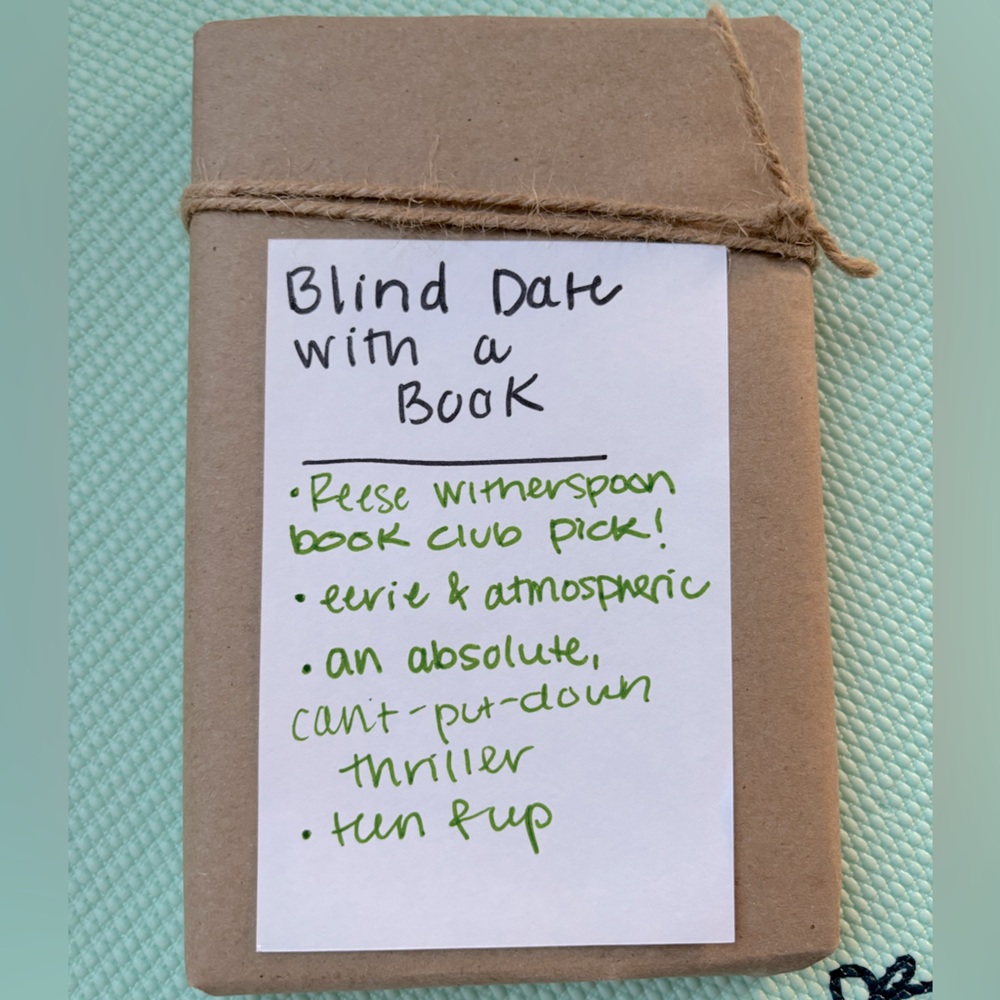 Blind Date
with a
Book
• Reese witherspoon
book club pick!
• eerie & atmospheric
• an absolute,
can't-put-down
thriller
• teen & up